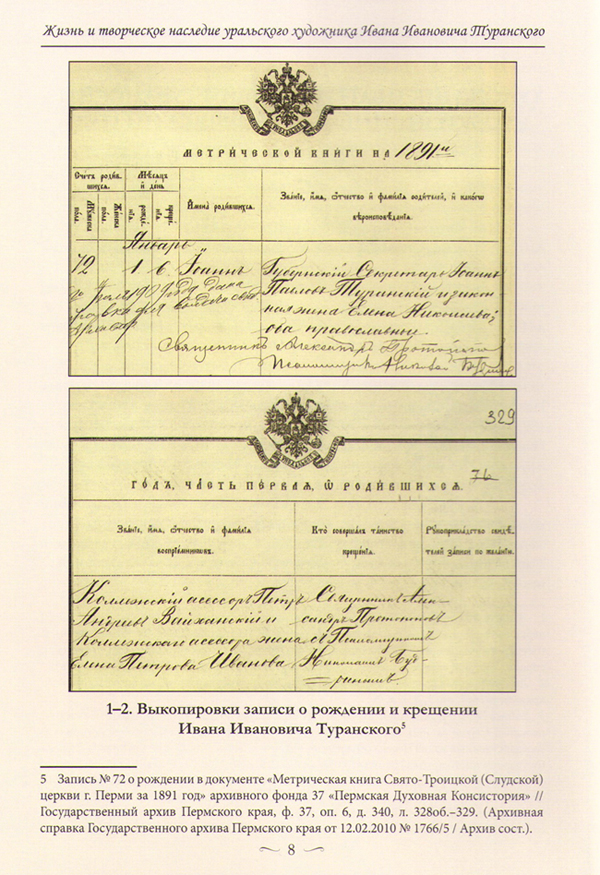 Жизнь и творческое наследие уральского художника Ивана Ивановича Туранского
МЕТРИЧЕСКОЙ КНИГИ НА 1891й
Счетъ родив-
шихся.
Мѣсяцъ
и день
Имена родившихся.
Званіе, имя, отчество и фамилія родителей, и какого
вѣроисповѣданія.
Январь
72 1 6. Іоаннъ
Губернскій Секретарь Іоаннъ
Павловъ Туранскій и закон
ная жена Елена Николаева;
оба православные
Священникъ Александръ
329
ГОДЪ, ЧАСТЬ ПЕРВАЯ, Ѡ РОДИВШИХСЯ.
76
Званіе, имя, отчество и фамилія
воспріемниковъ.
Кто совершалъ таинство
крещенія.
Рукоприкладство свидѣ-
телей записи по желанію.
Коллежскій асессоръ Петръ
Андреевъ и
Коллежская асессора жена
Елена Петрова Иванова
Священникъ Алек-
сандръ
съ Псаломщикомъ
Николаемъ
1–2. Выкопировки записи о рождении и крещении
Ивана Ивановича Туранского⁵
5 Запись № 72 о рождении в документе «Метрическая книга Свято-Троицкой (Слудской)
церкви г. Перми за 1891 год» архивного фонда 37 «Пермская Духовная Консистория» //
Государственный архив Пермского края, ф. 37, оп. 6, д. 340, л. 328об.–329. (Архивная
справка Государственного архива Пермского края от 12.02.2010 № 1766/5 / Архив сост.).
8